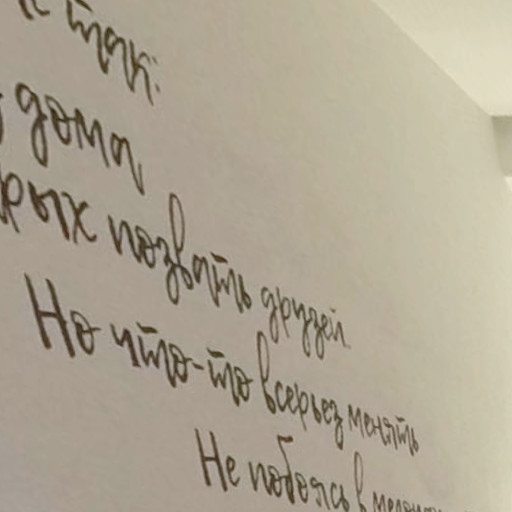 так:
дома
позвать друзей
Но что-то всерьез менять
Не побоясь в